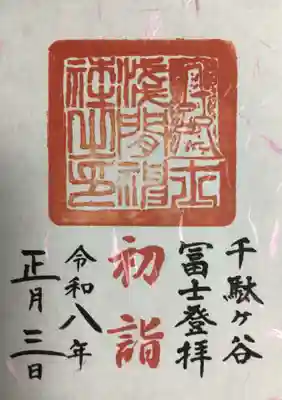 浅間神
社之印
千駄ヶ谷
冨士登拝
初詣
令和八年
正月三日